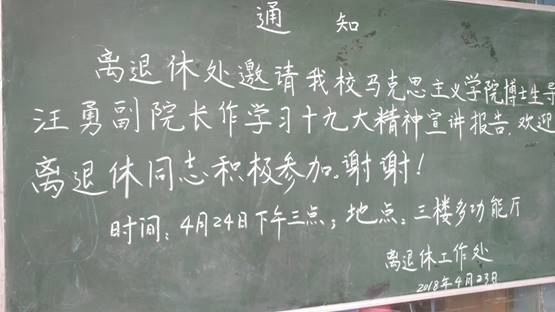 通 知
离退休处邀请我校马克思主义学院博士生导
汪勇副院长作学习十九大精神宣讲报告.欢迎
离退休同志积极参加。谢谢!
时间:4月24日下午三点;地点:三楼多功能厅
离退休工作处
2018年4月23日